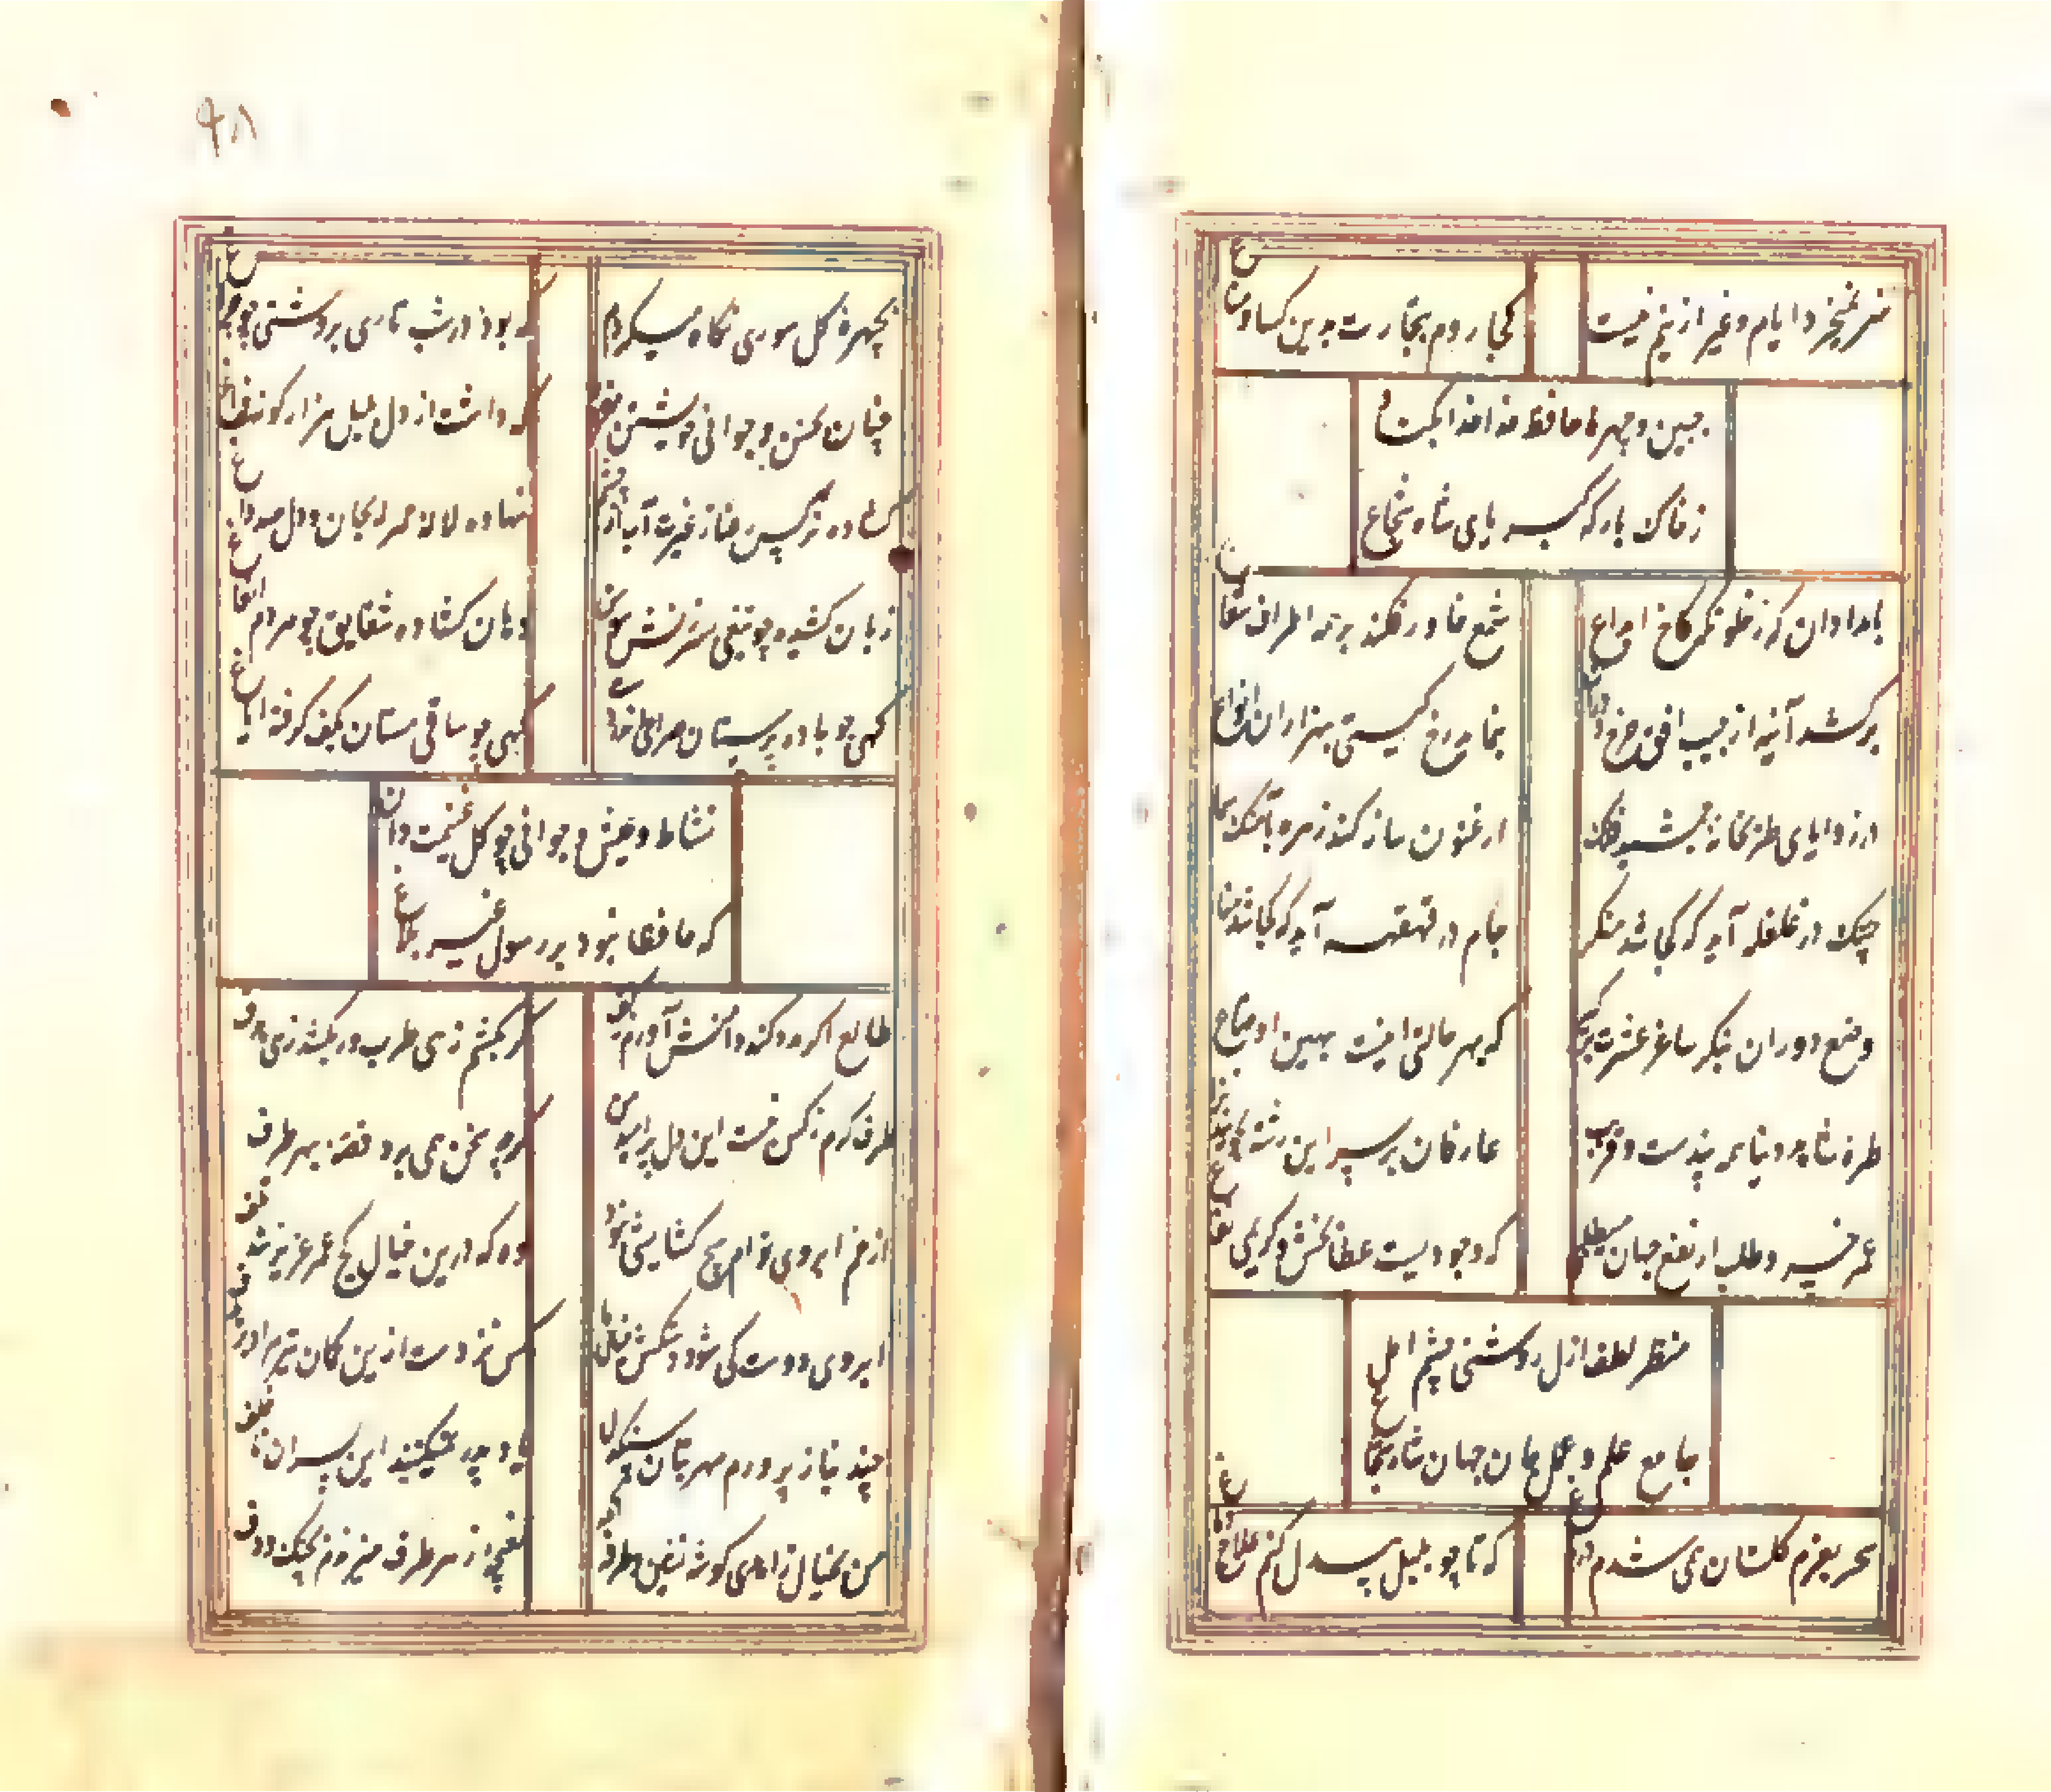 هنر نمیخرد ایام و غیر ازینم نیست
کجا روم بتجارت بدین کساد متاع
جبین و چهره حافظ خدا جدا مکناد
ز خاک بارگه کبریای شاه شجاع
بامدادان که ز خلوتگه کاخ ابداع
شمع خاور فکند بر همه اطراف شعاع
برکشد آینه از جیب افق چرخ و در آن
بنماید رخ گیتی بهزاران انواع
در زوایای طربخانه جمشید فلک
ارغنون ساز کند زهره بآهنگ سماع
چنگ در غلغله آید که کجا شد منکر
جام در قهقهه آید که کجا شد مناع
وضع دوران بنگر ساغر عشرت برگیر
که بهر حالتی اینست بهین اوضاع
طره شاهد دنیا همه بندست و فریب
عارفان بر سر این رشته نجویند نزاع
عمر خسرو طلب ار نفع جهان میطلبی
که وجودیست عطابخش و کریمی نفاع
مظهر لطف ازل روشنی چشم امل
جامع علم و عمل جان جهان شاه شجاع
سحر بعزم گلستان می شدم در باغ
که تا چو بلبل بیدل کنم علاج دماغ
۹۸
بچهره گل سوری نگاه میکردم
که بود در شب تاری بروشنی چو چراغ
چنان بحسن و جوانی خویشتن مغرور
که داشت از دل بلبل هزار گونه فراغ
گشاده نرگس رعنا ز غیرت آب از چشم
نهاده لاله حمرا بجان و دل صد داغ
زبان کشیده چو تیغی بسرزنش سوسن
دهان گشاده شقایق چو مردم ایغاغ
گهی چو باده پرستان صراحی اندر دست
گهی چو ساقی مستان بکف گرفته ایاغ
نشاط و عیش و جوانی چو گل غنیمت دان
که حافظا نبود بر رسول غیر بلاغ
طالع اگر مدد کند دامنش آورم بکف
گر بکشم زهی طرب ور بکشد زهی شرف
طرف کرم ز کس نبست این دل پر امید من
گرچه سخن همی برد قصه بهر طرف
از خم ابروی توام هیچ گشایشی نشد
وه که درین خیال کج عمر عزیز شد تلف
ابروی دوست کی شود دستکش خیال من
کس نزدست ازین کمان تیر مراد بر هدف
چند بناز پرورم مهر بتان سنگدل
یاد پدر نمیکنند این پسران ناخلف
من بخیال زاهدی گوشه نشین و طرفه آنک
مغبچه از هر طرف میزندم بچنگ و دف